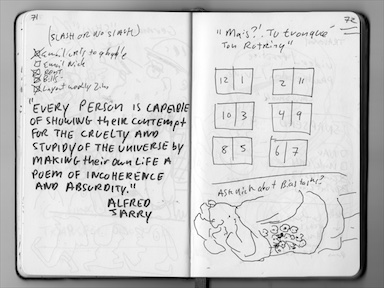 71
(SLASH OR NO SLASH)
Email
Email Nick
RENT
Bills
Layout weekly
"EVERY PERSON IS CAPABLE
OF SHOWING their CONTEMPT
FOR THE CRUELTY AND
STUPIDY OF THE UNIVERSE by
MAKING their own LIFE A
POEM OF INCOHERENCE
AND ABSURDITY."
ALFRED
JARRY
72
"Mais?! Tu tronqué
Ton Rotring"
12 1 2 11
10 3 4 9
8 5 6 7
Ask Nick about